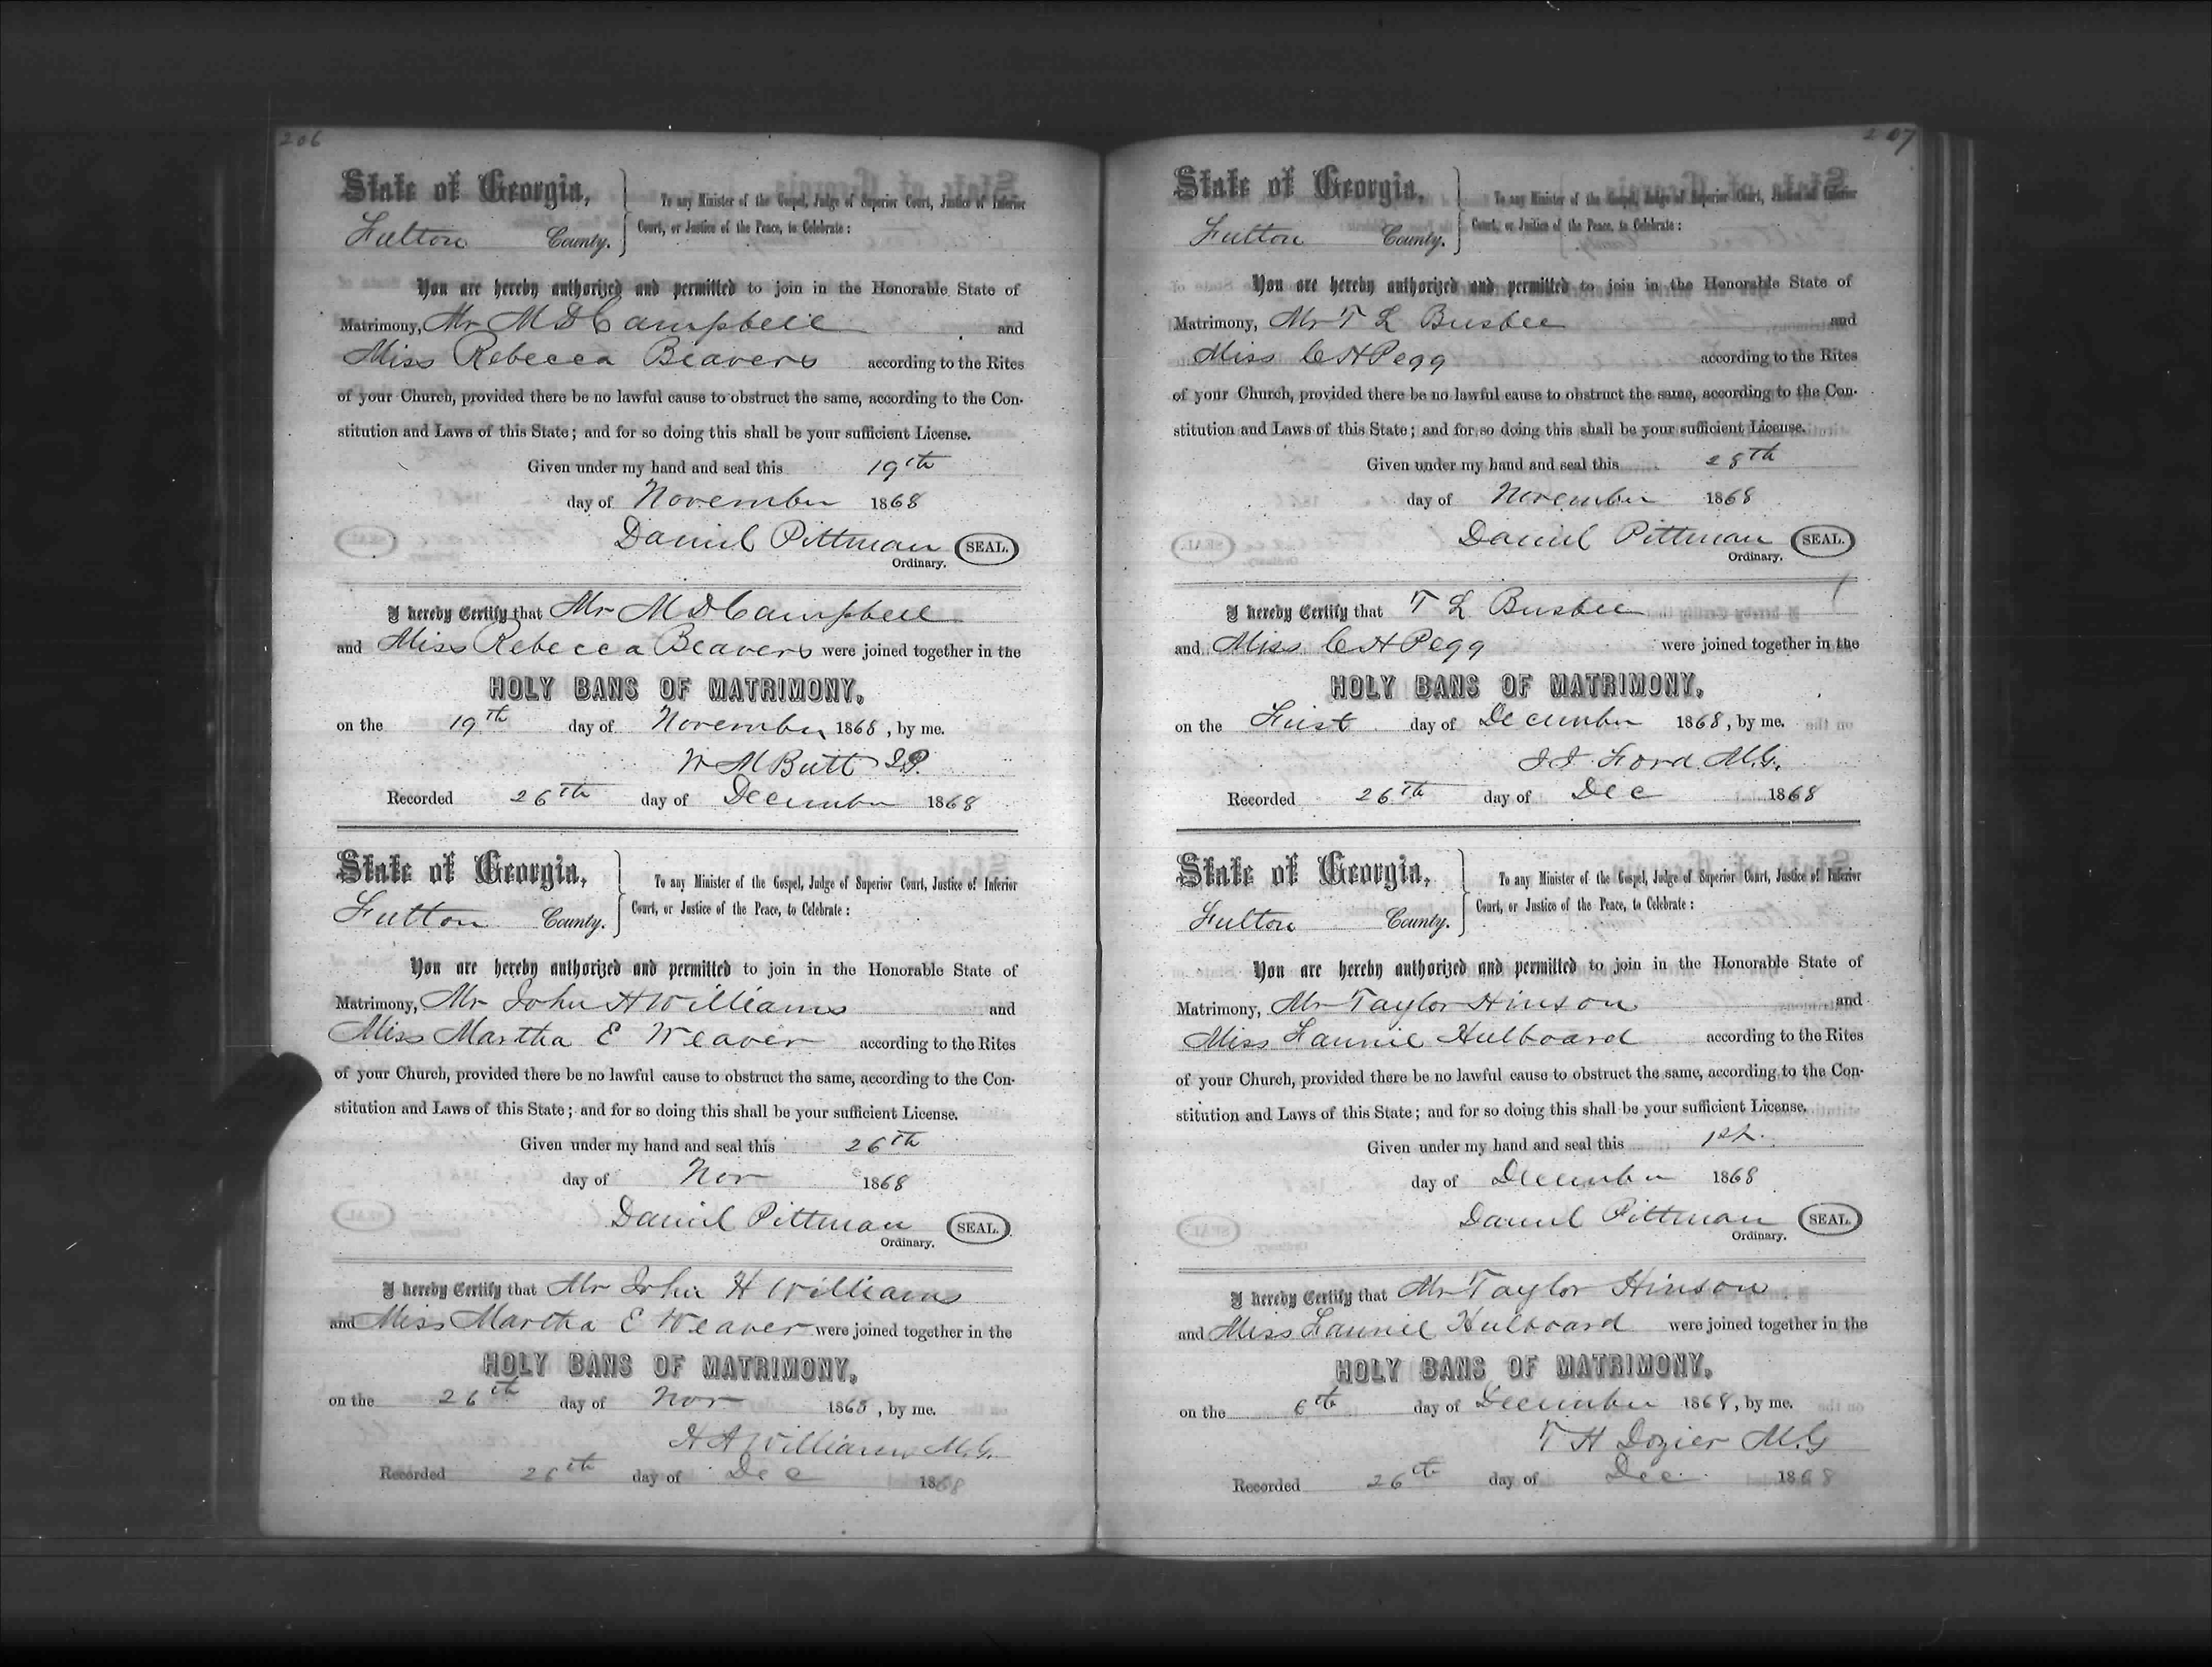 206
State of Georgia,
Fulton County.
To any Minister of the Gospel, Judge of Superior Court, Justice of Inferior
Court, or Justice of the Peace, to Celebrate:
You are hereby authorized and permitted to join in the Honorable State of
Matrimony, Mr M D Campbell and
Miss Rebecca Beavers according to the Rites
of your Church, provided there be no lawful cause to obstruct the same, according to the Con-
stitution and Laws of this State; and for so doing this shall be your sufficient License.
Given under my hand and seal this 19th
day of November 1868
Daniel Pittman SEAL.
Ordinary.
I hereby Certify that Mr M D Campbell
and Miss Rebecca Beavers were joined together in the
HOLY BANS OF MATRIMONY,
on the 19th day of November 1868, by me.
W M Butt J.P.
Recorded 26th day of December 1868
State of Georgia,
Fulton County.
To any Minister of the Gospel, Judge of Superior Court, Justice of Inferior
Court, or Justice of the Peace, to Celebrate:
You are hereby authorized and permitted to join in the Honorable State of
Matrimony, Mr John H Williams and
Miss Martha E Weaver according to the Rites
of your Church, provided there be no lawful cause to obstruct the same, according to the Con-
stitution and Laws of this State; and for so doing this shall be your sufficient License.
Given under my hand and seal this 26th
day of Nov 1868
Daniel Pittman SEAL.
Ordinary.
I hereby Certify that Mr John H Williams
and Miss Martha E Weaver were joined together in the
HOLY BANS OF MATRIMONY,
on the 26th day of Nov 1868, by me.
H A Williams M.G.
Recorded 26th day of Dec 1868
207
State of Georgia,
Fulton County.
To any Minister of the Gospel, Judge of Superior Court, Justice of Inferior
Court, or Justice of the Peace, to Celebrate:
You are hereby authorized and permitted to join in the Honorable State of
Matrimony, Mr T L Busbee and
Miss C H Pegg according to the Rites
of your Church, provided there be no lawful cause to obstruct the same, according to the Con-
stitution and Laws of this State; and for so doing this shall be your sufficient License.
Given under my hand and seal this 28th
day of November 1868
Daniel Pittman SEAL.
Ordinary.
I hereby Certify that T L Busbee
and Miss C H Pegg were joined together in the
HOLY BANS OF MATRIMONY,
on the First day of December 1868, by me.
J J Ford M.G.
Recorded 26th day of Dec 1868
State of Georgia,
Fulton County.
To any Minister of the Gospel, Judge of Superior Court, Justice of Inferior
Court, or Justice of the Peace, to Celebrate:
You are hereby authorized and permitted to join in the Honorable State of
Matrimony, Mr Taylor Hinson and
Miss Fannie Hulboard according to the Rites
of your Church, provided there be no lawful cause to obstruct the same, according to the Con-
stitution and Laws of this State; and for so doing this shall be your sufficient License.
Given under my hand and seal this 1st.
day of December 1868
Daniel Pittman SEAL.
Ordinary.
I hereby Certify that Mr Taylor Hinson
and Miss Fannie Hulboard were joined together in the
HOLY BANS OF MATRIMONY,
on the 6th day of December 1868, by me.
T H Dozier M.G
Recorded 26th day of Dec 1868